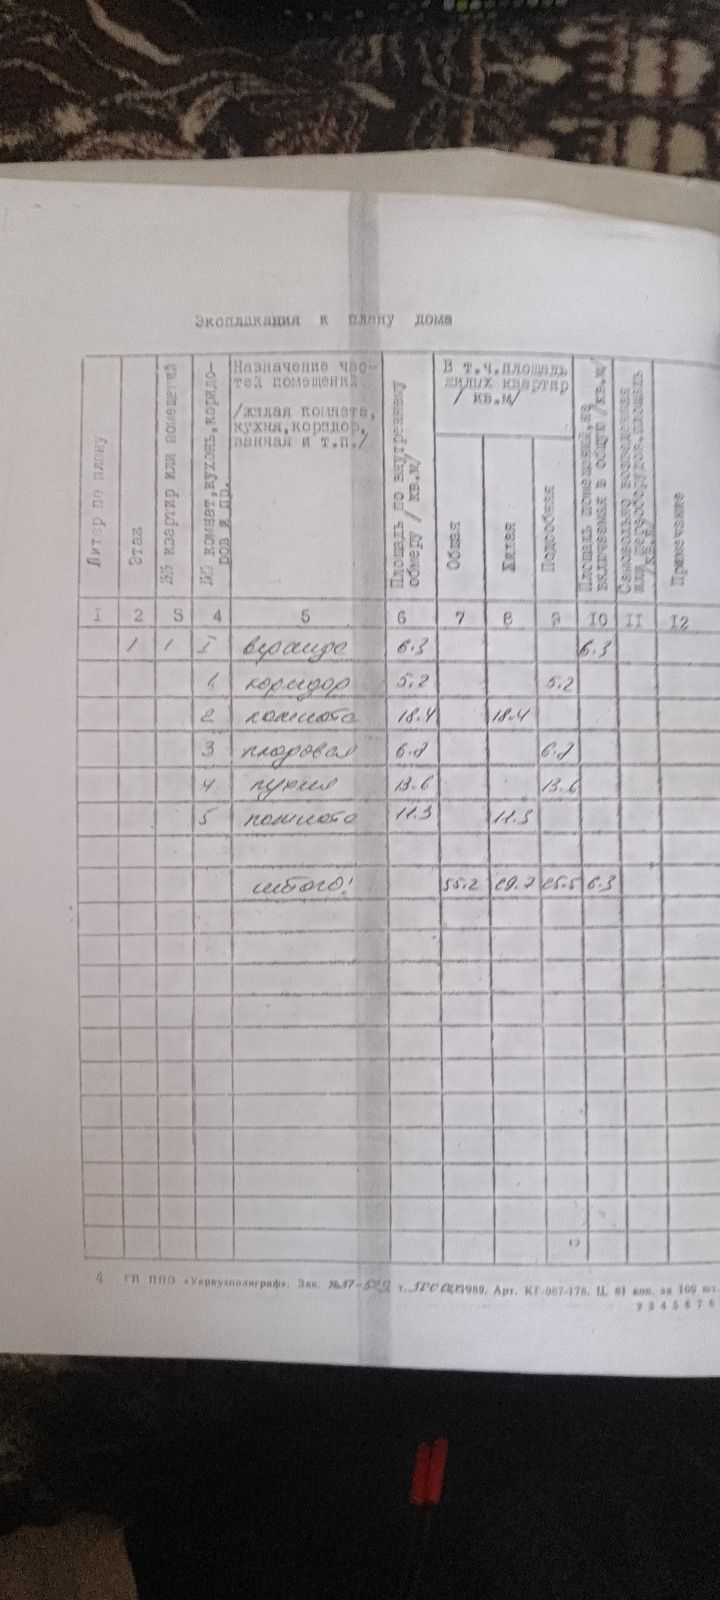 Экоплакация к плану дома
Литер по плану
Этаж
№№ квартир или помещений
№№ комнат,кухонь,коридо-
ров и пр.
Назначение час-
тей помещений
/жилая комната,
кухня,коридор,
ванная и т.п./
Площадь по внутреннему
обмеру / кв.м/
В т.ч.площадь
жилых квартир
/ кв.м/
Общая
Жилая
Подсобная
Площадь помещений,не
включаемая в общую /кв.м/
Самовольно возведенная
или переоборудов.площадь
/кв.м/
Примечание
I 2 3 4 5 6 7 8 9 10 11 12
1 1 I веранда 6.3 6.3
1 коридор 5.2 5.2
2 комната 18.4 18.4
3 кладовая 6.7 6.7
4 кухня 13.6 13.6
5 комната 11.3 11.3
итого: 55.2 29.7 25.5 6.3
4 ГП ППО «Укрвузполиграф». Зак. т. 1989. Арт. КГ-087-178. Ц. 81 коп. за 100 шт.
2 3 4 5 6 7 8